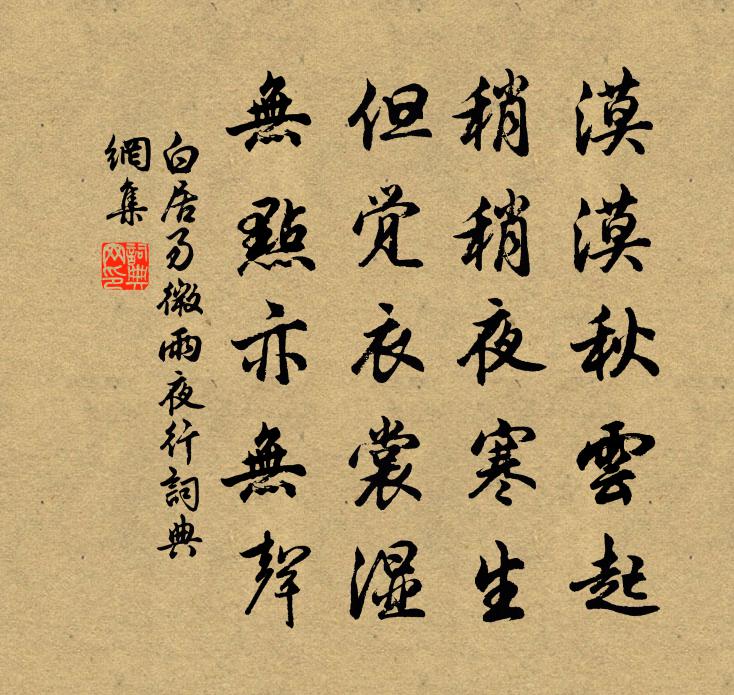 漠漠秋雲起
稍稍夜寒生
但覚衣裳湿
無點亦無聲
白居易微雨夜行詞典
網集
詞典
网印